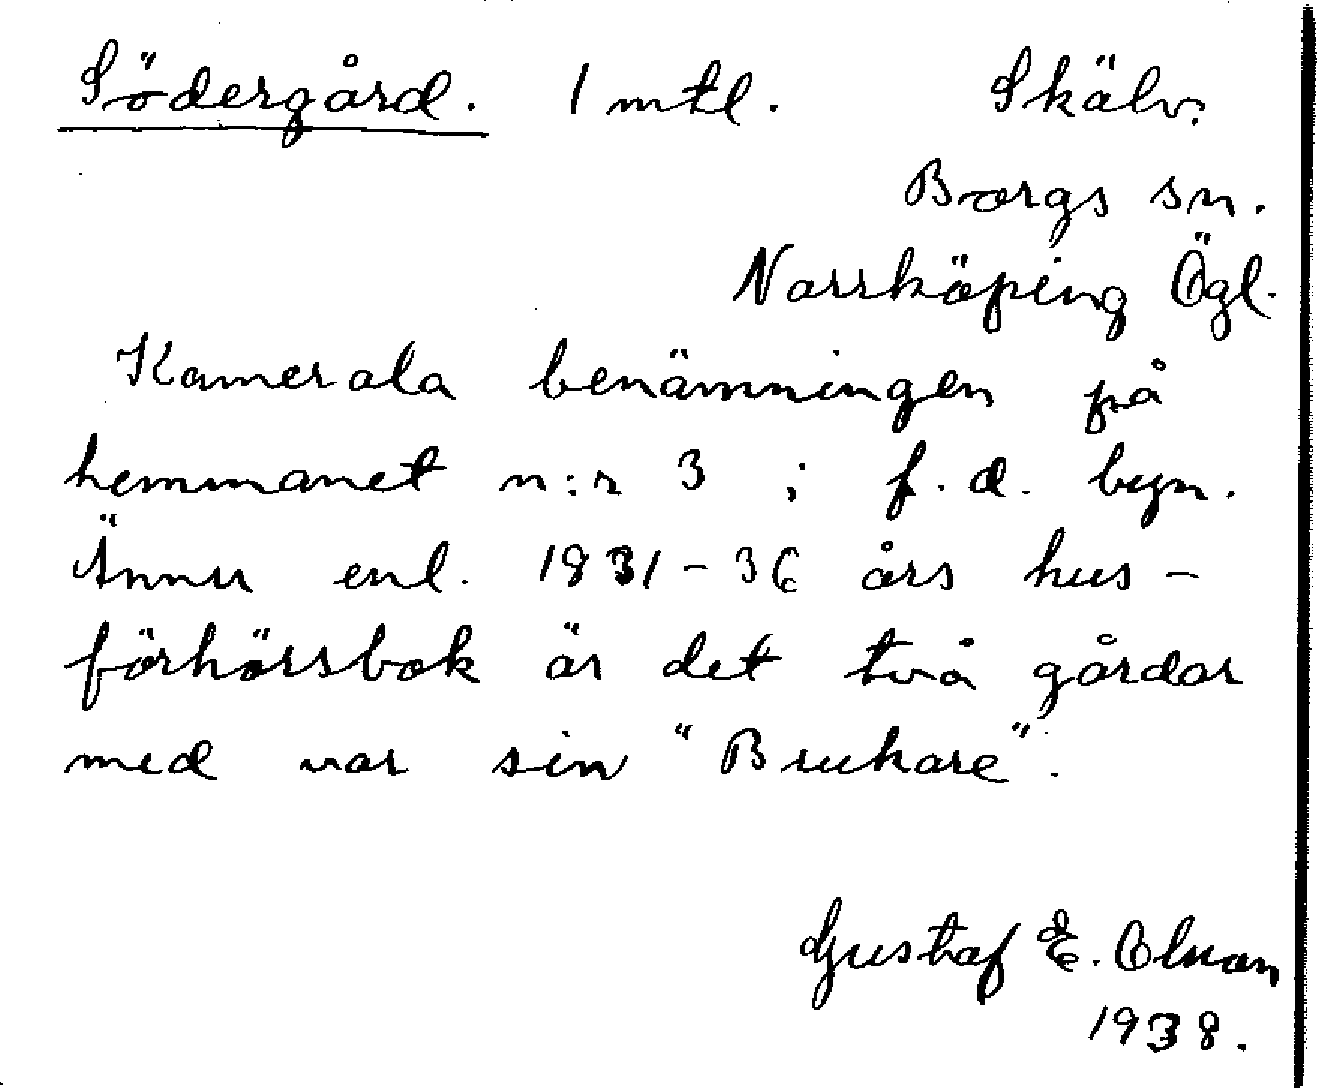 Södergård. 1 mtl. Skälv.
Borgs sn.
Norrköping Ögl.
Kamerala benämningen på
hemmanet n:r 3 i f.d. byn.
Ännu enl. 1831-36 års hus-
förhörsbok är det två gårdar
med var sin "Brukare".
Gustaf E. Olson
1938.